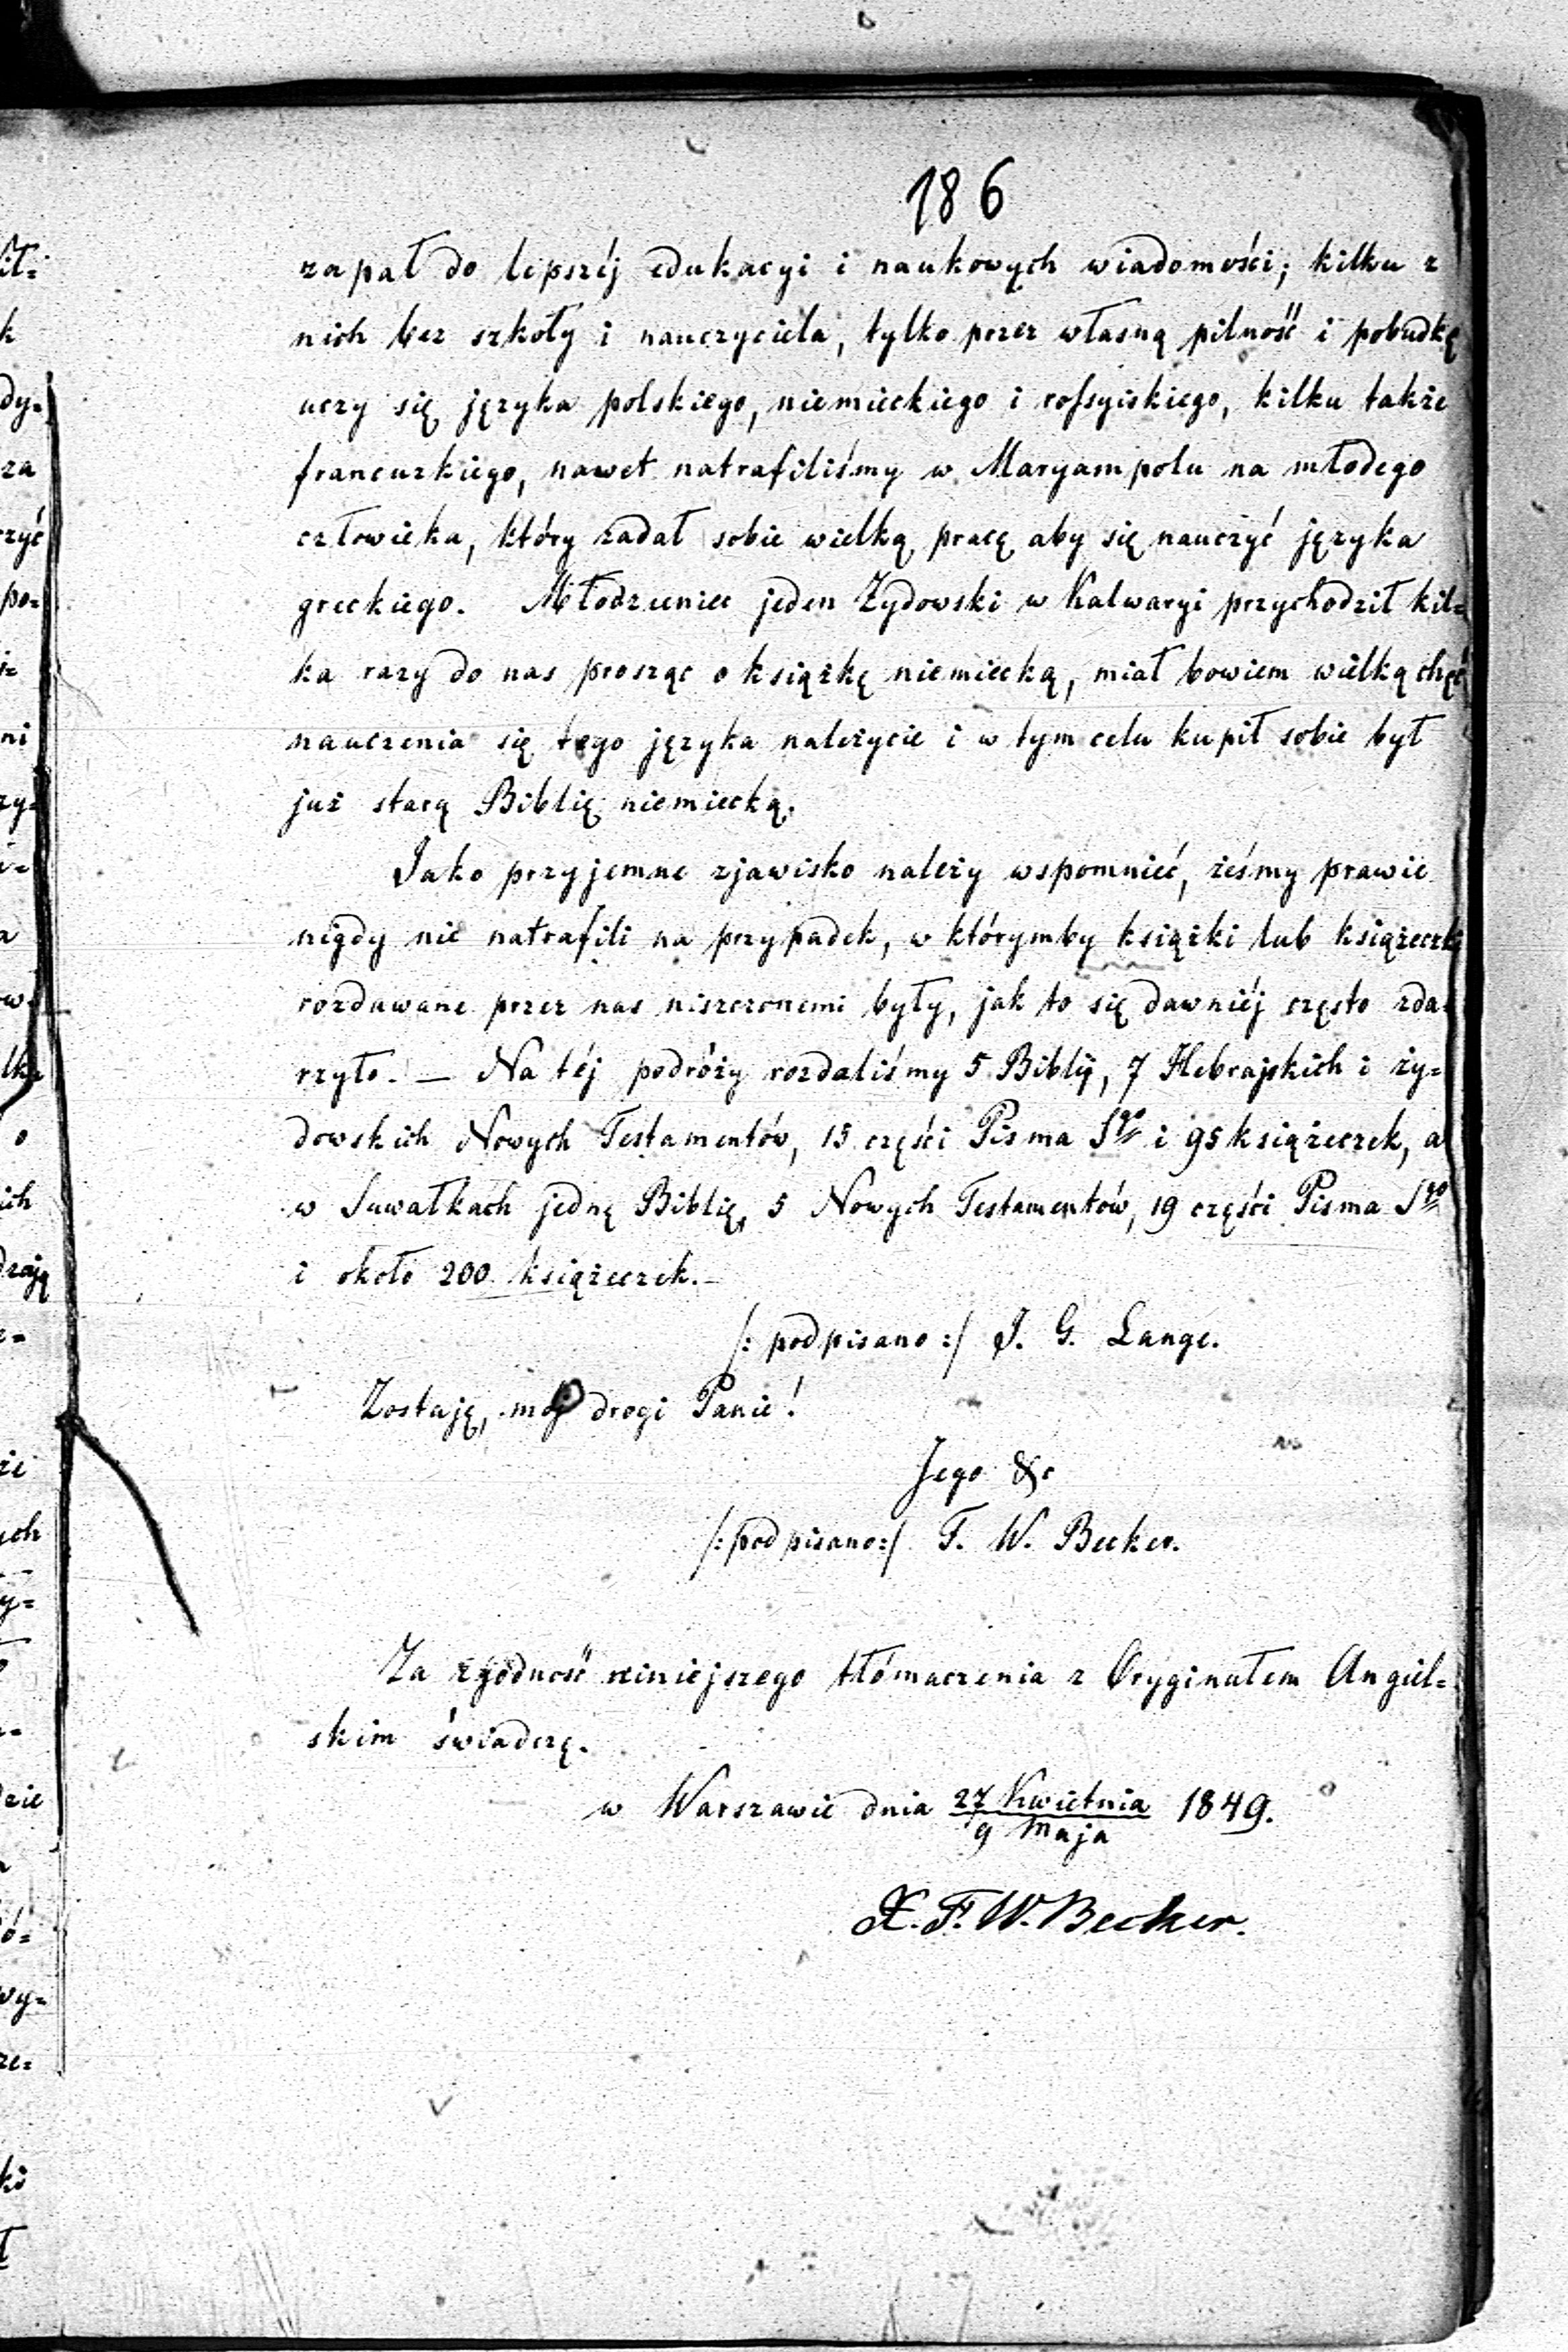 186
zapał do lepszéj edukacyi i naukowych wiadomości; kilku z
nich bez szkoły i nauczyciela, tylko przez własną pilność i pobudkę
uczy się języka polskiego, niemieckiego i rossyiskiego, kilku także
francuzkiego, nawet natrafiliśmy w Maryampolu na młodego
człowieka, który zadał sobie wielką pracę aby się nauczyć języka
greckiego. Młodzieniec jeden Żydowski w Kalwaryi przychodził kil=
ka razy do nas prosząc o książkę niemiecką, miał bowiem wielką chęć
nauczenia się tego języka należycie i w tym celu kupił sobie był
już starą Biblię niemiecką.
Jako przyjemne zjawisko należy wspomnieć, żeśmy prawie
nigdy nie natrafili na przypadek, w którymby książki lub książeczki
rozdawane przez nas niszczonemi były, jak to się dawniéj często zda=
rzyło. — Na téj podróży rozdaliśmy 5 Biblij, 7 Hebrajskich i ży=
dowskich Nowych Testamentów, 15 części Pisma Sgo i 95 książeczek, a
w Suwałkach jednę Biblię, 5 Nowych Testamentów, 19 części Pisma Sgo
i około 200 książeczek. —
/: podpisano :/ J. G. Lange.
Zostaję, mój drogi Panie!
Jego &c
/: podpisano :/ F. W. Becker.
Za zgodność niniejszego tłómaczenia z Oryginałem Angiel=
skim świadczę.
w Warszawie dnia 27 Kwietnia / 9 Maja 1849.
X. F. W. Becker.